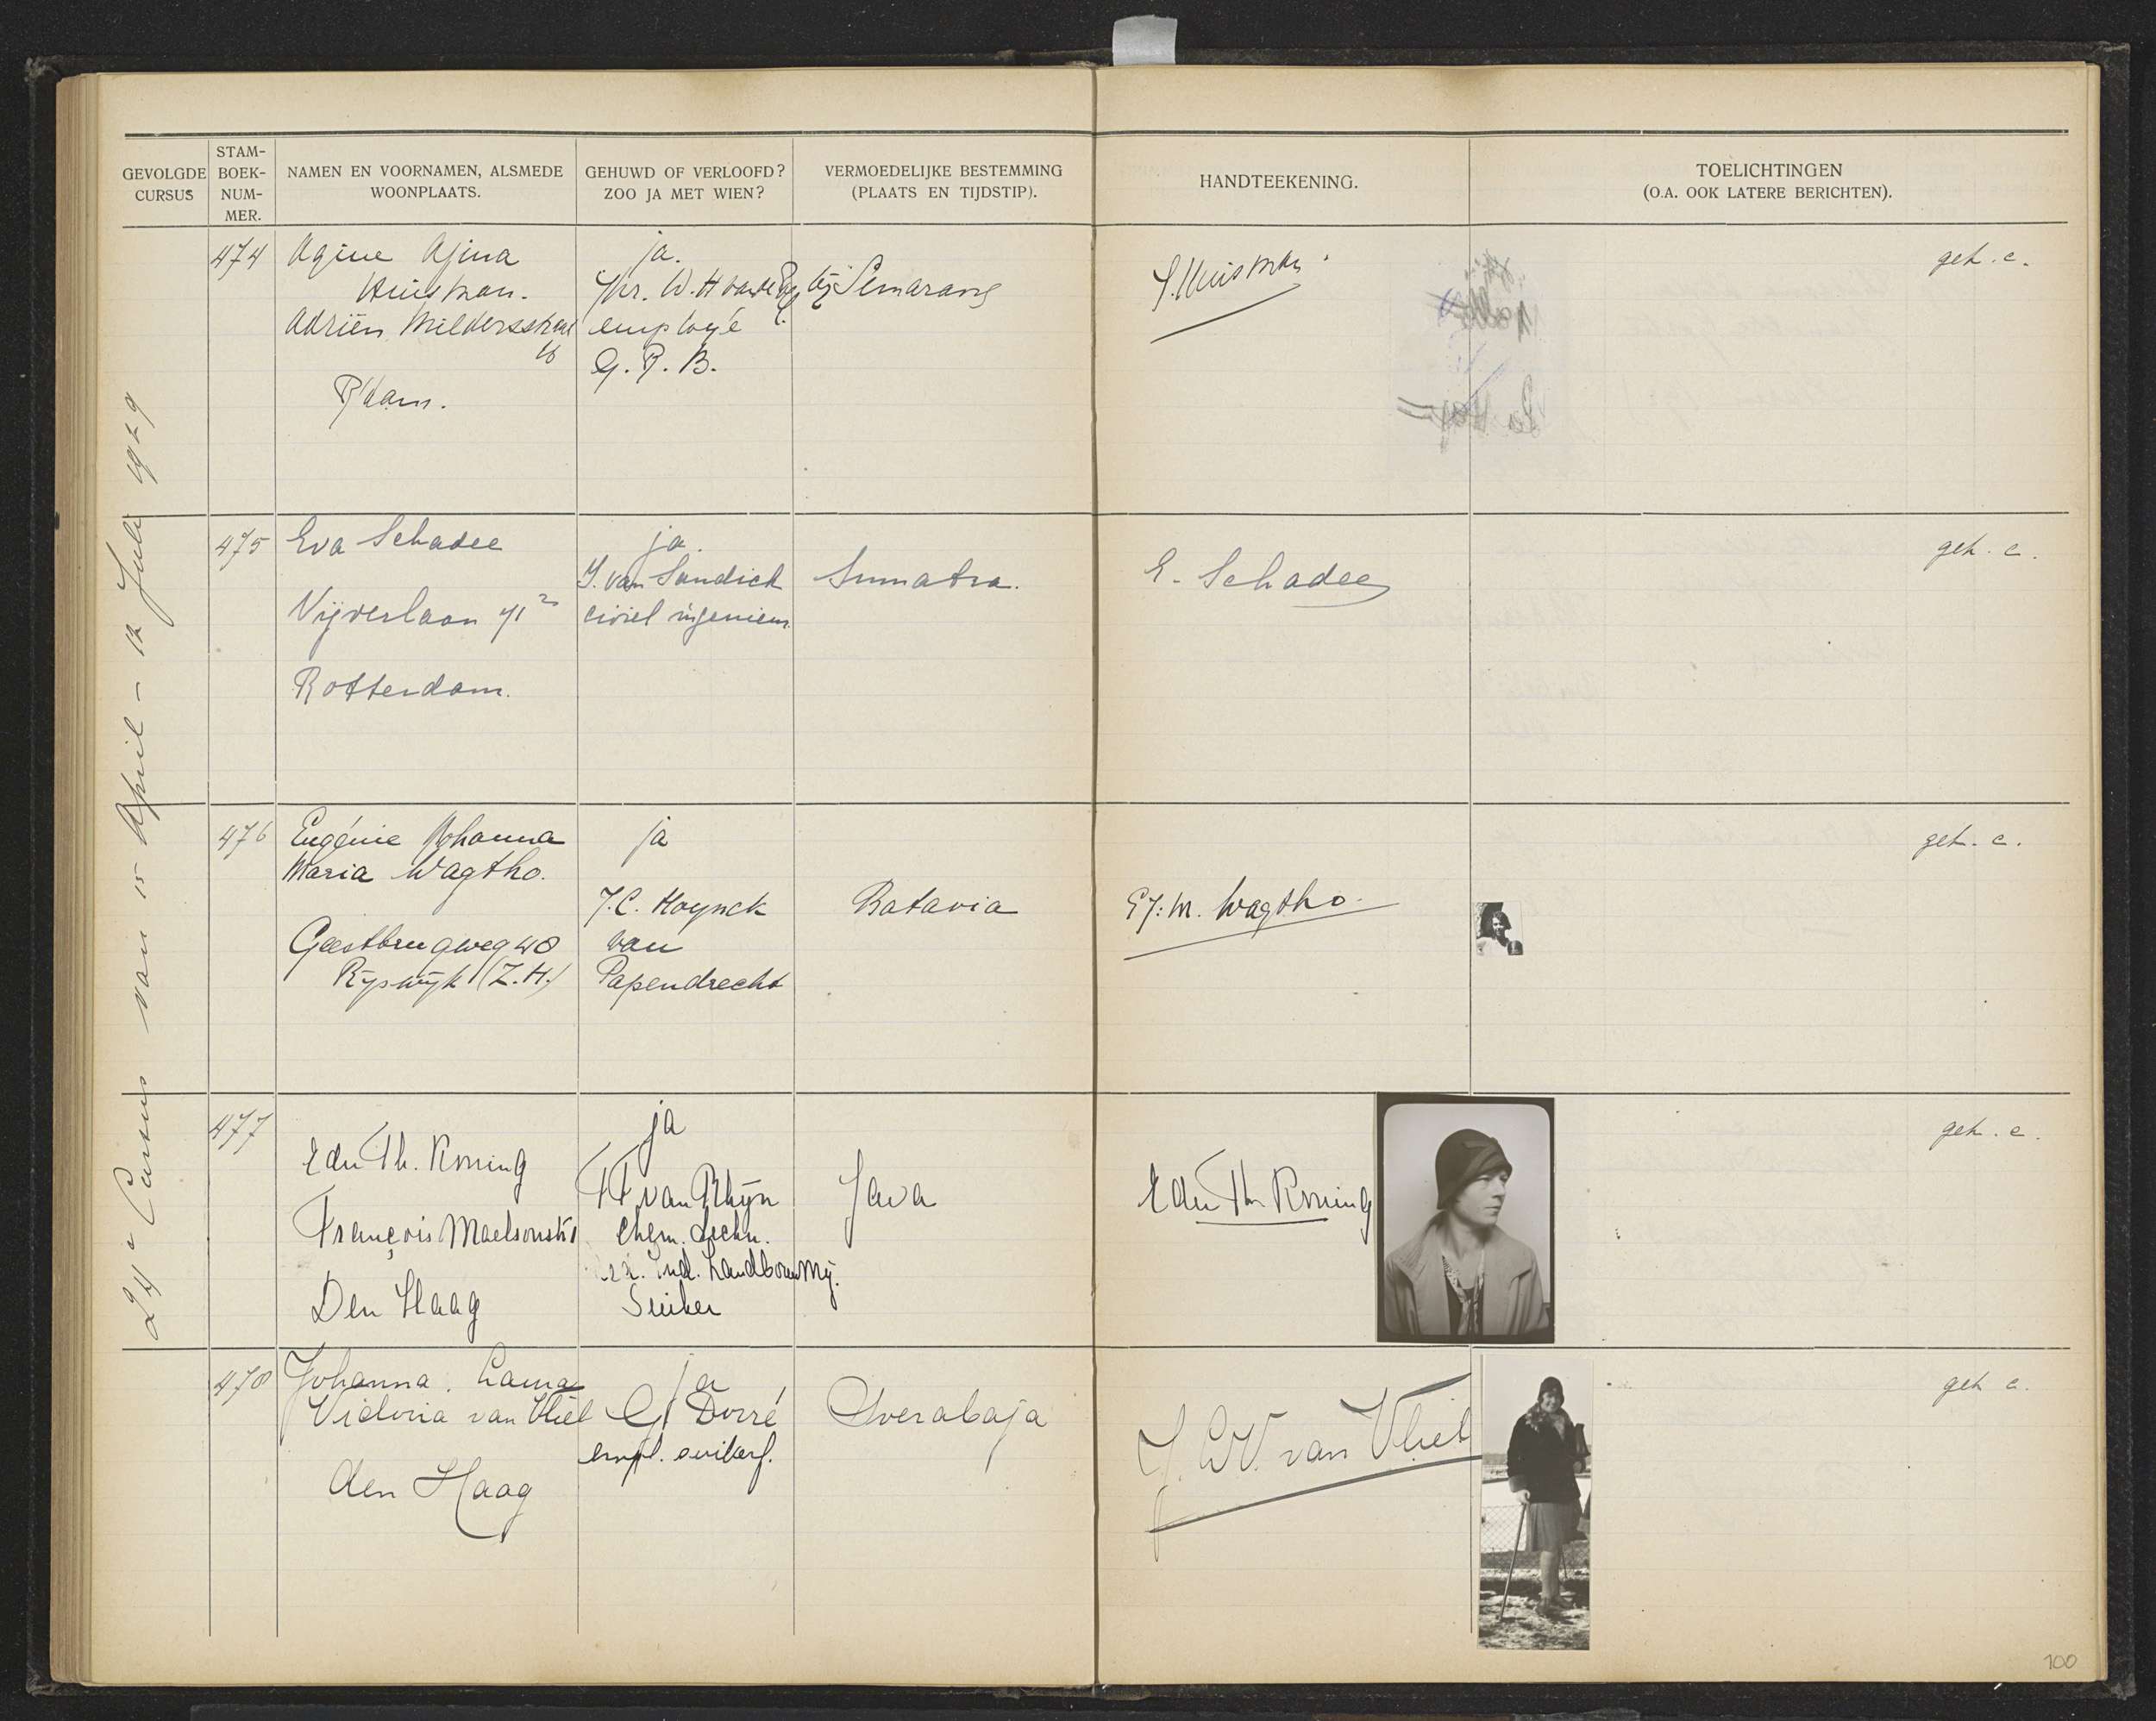 GEVOLGDE CURSUS
STAM-BOEK-NUM-MER.
NAMEN EN VOORNAMEN, ALSMEDE WOONPLAATS.
GEHUWD OF VERLOOFD? ZOO JA MET WIEN?
VERMOEDELIJKE BESTEMMING (PLAATS EN TIJDSTIP).
HANDTEEKENING.
TOELICHTINGEN (O.A. OOK LATERE BERICHTEN).
24e Cursus van 15 April - 12 Juli 1929
474
Huisman.
Adriën Milderstraat
R'dam.
ja.
Jhr. W. H
employé
G. R. B.
bij Semarang
Huisman
geh. c.
475
Eva Schadee
Vijverlaan 71
Rotterdam.
ja.
van Sandick
civiel ingenieur
Sumatra.
E. Schadee
geh. c.
476
Eugénie Johanna
Maria Wagtho.
Geestbrugweg 48
Ryswyk (Z.H.)
ja
J.C. Hoynck
van
Papendrecht
Batavia
E.J.M. Wagtho.
geh. c.
477
Edu Th. Koning
François Maelsonstr
Den Haag
ja
FF van Rhijn
Chem. techn.
Ind. Landbouw Mij.
Suiker
Java
Edu Th Koning
geh. c.
478
Johanna
Victoria van Vliet
den Haag
ja
G Dorré
empl. suikerf.
Soerabaja
van Vliet
geh c.
100